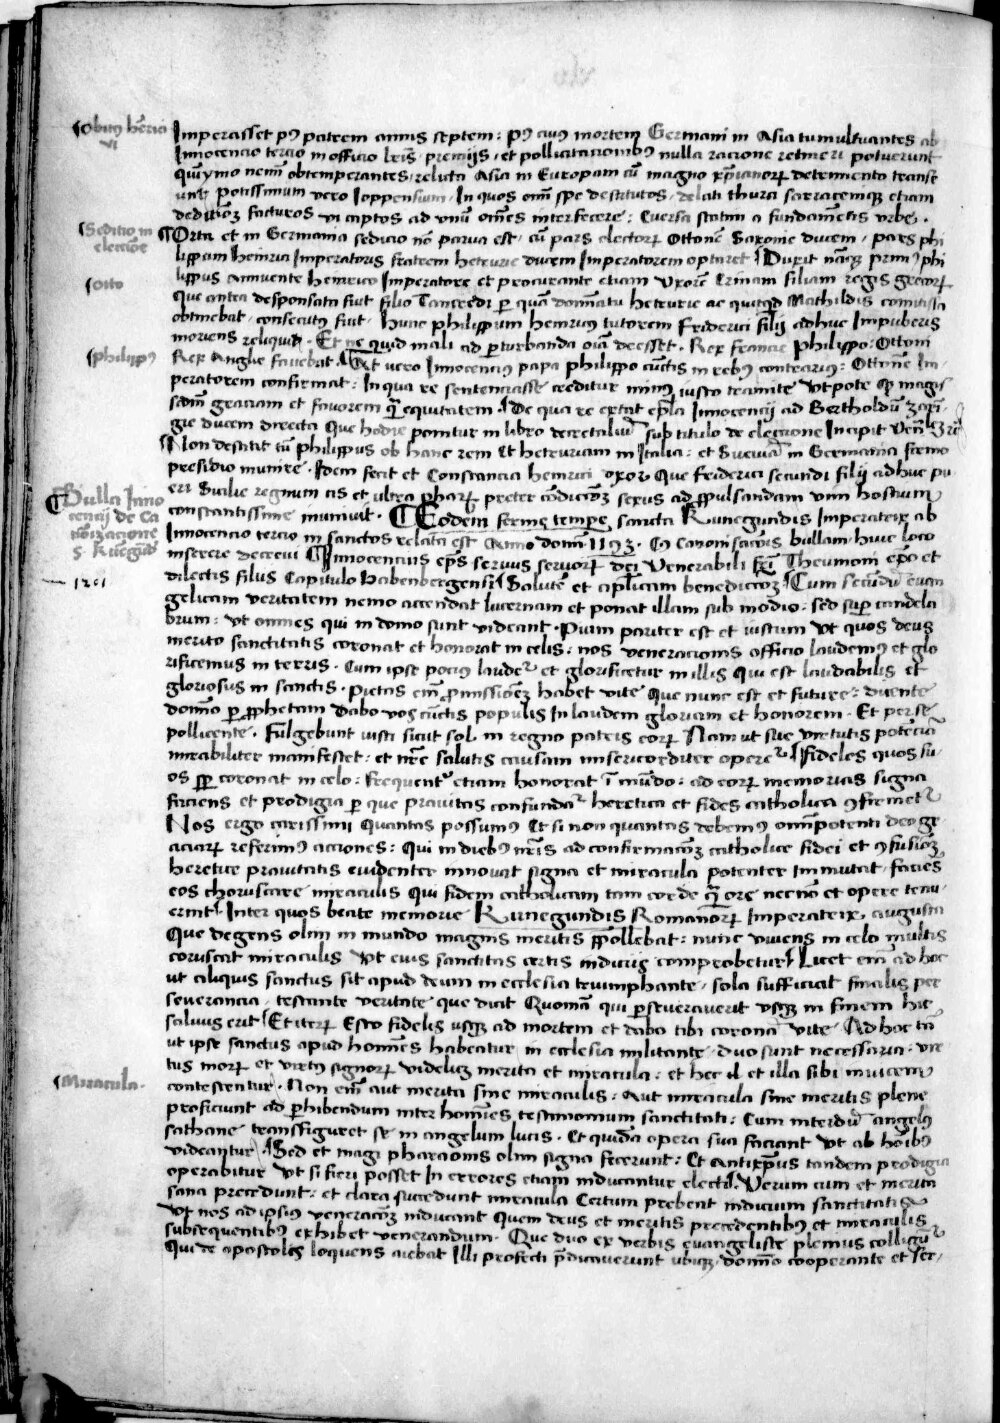 Obitus henrici
vi
Imperasset p9 patrem annis septem : p9 cuius mortem Germani in Asia tumultuantes ab
Innocencio tercio in officio lr̄is premijs, et pollicitacionib9 nulla racione retineri potuerunt
quiymo nemī obtemperantes, relicta Asia in Europam cū magno xp̄ianorꝝ detrimento transie
runt potissimum vero Joppensium, In quos om̄ spe destitutos, delati thura sarracenique etiam
dediciōꝫ facturos vi captos ad vnū om̄es interfecere : Euersa statim a fundamētis vrbe .
Sedicio in
eleccione
Orta et in Germania sedicio nō parua est, cū pars electorꝝ Ottonē Saxonie ducem, pars phi
lippum heinrici Imperatoris fratrem hetrurie ducem Imperatorem optaret Duxit nāqꝫ primū phi
Otto
lippus Annuente heinrico Imperatore et procurante etiam vxorē Erinam filiam regis grecorꝝ
Que antea desponsata fuit filio Tancredi per quā dominatū hetrurie ac quitqd Mathildis comitissa
obtinebat, consecutus fuit . Hunc philippum heinricus tutorem Friderici filij adhuc Impuberis
moriens reliquit . Et ne quid mali ad perturbanda oīa deesset . Rex Francie Philippo : Ottoni
philippus
Rex Anglie fauebat . At vero Innocencius papa philippo cunctis in rebus contrarius : Ottonē Im
peratorem confirmat : In qua re sentenciasse creditur minus iusto tramite vtpote qꝫ magis
scdm̄ graciam et fauorem qm̄ equitatem . De qua re extat epl̄a Innocencij ad Bertholdū Zarin
gie ducem directa Que hodie ponitur in libro decretaliū sub titulo de eleccione Incipit Venēꝫ
Non destitit tn̄ philippus ob hanc rem Et hetruriam in Italia : et Sueuiā in Germania firmo
presidio munire . Idem fecit et Constancia heinrici vxor Que Friderici secundi filij adhuc pu
eri Sicilie regnum cis et vltra pharꝝ preter condicōꝫ sexus ad propulsandam vim hostium
constantissime muniuit . Eodem ferme tempore sancta Kunegundis Imperatrix ab
Bulla Inno
cencij de Ca
nōizacione
S. Kunegūd
Innocencio tercio in sanctos relata est Anno domini 1193 . Cuius Canonisacōis bullam huic loco
inserere decreui Innocencius ep̄s seruus seruorꝝ dei Venerabili fr̄i Thiemoni ep̄o et
1201
dilectis filijs Capitulo babenbergensi Salutē et aplicam benediccōꝫ Cum secundū euan
gelicam veritatem nemo accendat lucernam et ponat illam sub modio : sed super candela
brum : vt omnes qui in domo sunt videant . Pium pariter est et iustum vt quos deus
merito sanctitatis coronat et honorat in celis : nos veneracionis officio laudemus et glo
rificemus in terris . Cum ipse pocius laudetur et glorificetur in illis Qui est laudabilis et
gloriosus in sanctis . Pietas em̄ promissionēꝫ habet vite Que nunc est et future : dicente
domino per prophetam Dabo vos cunctis populis In laudem gloriam et honorem . Et per se
pollicente . Fulgebunt iusti sicut sol in regno patris eorꝝ Nam vt sue virtutis potenciā
mirabiliter manifestet : et nr̄e salutis causam misericorditer operetur Fideles quos su
os semper coronat in celo : frequenter etiam honorat ī mūdo : ad eorꝝ memorias signa
faciens et prodigia per que prauitas confundatur heretica et fides catholica confirmetur
Nos ergo carissimi quantas possumus Et si non quantas debemus omnipotenti deo gr̄
aciarꝝ referimus acciones : Qui in diebus nr̄is ad confirmacōꝫ catholice fidei et confusiōꝫ
heretice prauitatis euidenter innouat signa et miracula potenter immutat, facies
eos choruscare miraculis Qui fidem catholicam tam corde qm̄ ore necnō et opere tenu
erint Inter quos beate memorie Kunegundis Romanorꝝ Imperatrix, augusta
Que degens olim in mundo magnis meritis prepollebat : nunc viuens in celo multis
coruscat miraculis Vt eius sanctitas certis indicijs comprobetur Licet em̄ ad hoc
ut aliquis sanctus sit apud deum in ecclesia triumphante, sola sufficiat finalis per
seuerancia, testante veritate que dicit Quoniā qui perseuerauerit vsqꝫ in finem hic
saluus erit Et iterꝝ Esto fidelis vsqꝫ ad mortem et dabo tibi coronā vite Ad hoc tn̄
ut ipse sanctus apud homines habeatur in ecclesia militante, duo sunt necessaria : vir
tus morꝝ et virtus signorꝝ videlicet merita et miracula : et hec il et illa sibi inuicem
Miracula .
contestentur . Non em̄ aut merita sine miraculis : Aut miracula sine meritis plene
proficiunt ad perhibendum inter homines testimonium sanctitati : Cum interdū angelus
sathane transfiguret se in angelum lucis . Et quidā opera sua faciant vt ab hoībus
videantur Sed et magi pharaonis olim signa fecerunt : Et Antixp̄us tandem prodigia
operabitur vt si fieri posset In errores etiam inducantur electi . Verum cum et merita
sana precedunt : et clara succedunt miracula Certum prebent indicium sanctitatis
Vt nos ad ipsius veneracōꝫ inducant Quem deus et meritis precedentibus et miraculis
subsequentibus exhibet venerandum . Que duo ex verbis euangeliste plenius colligūtur
Qui de apostolis loquens aiebat Illi profecti p̄dicauerunt vbiqꝫ, domino cooperante et ser,